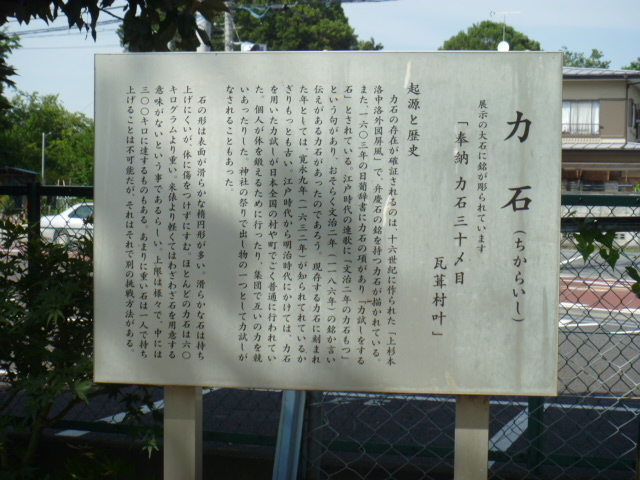 力石（ちからいし）
展示の大石に銘が彫られています
「奉納 力石三十〆目
瓦葺村叶」
起源と歴史
力石の存在が確証されるのは、十六世紀に作られた「上杉本
洛中洛外図屏風」で、弁慶石の銘を持つ力石が描かれている。
また、一六〇三年の日葡辞書に力石の項があり、「力試しをする
石」とされている。江戸時代の連歌に「文治二年の力石もつ」
という句があり、おそらく文治二年（一一八六年）の銘か言い
伝えがある力石があったのであろう。現存する力石に刻まれ
た年としては、寛永九年（一六三二年）が知られてれているか
ぎりもっとも古い。江戸時代から明治時代にかけては、力石
を用いた力試しが日本全国の村や町でごく普通に行われてい
た。個人が体を鍛えるために行ったり、集団で互いの力を競
いあったりした。神社の祭りで出し物の一つとして力試しが
なされることもあった。
石の形は表面が滑らかな楕円形が多い。滑らかな石は持ち
上げにくいが、体に傷をつけずにすむ。ほとんどの力石は六〇
キログラムより重い。米俵より軽くてはわざわざ石を用意する
意味がない、という事であるらしい。上限は様々で、中には
三〇〇キロに達するものもある。あまりに重い石は一人で持ち
上げることは不可能だが、それはそれで別の挑戦方法がある。